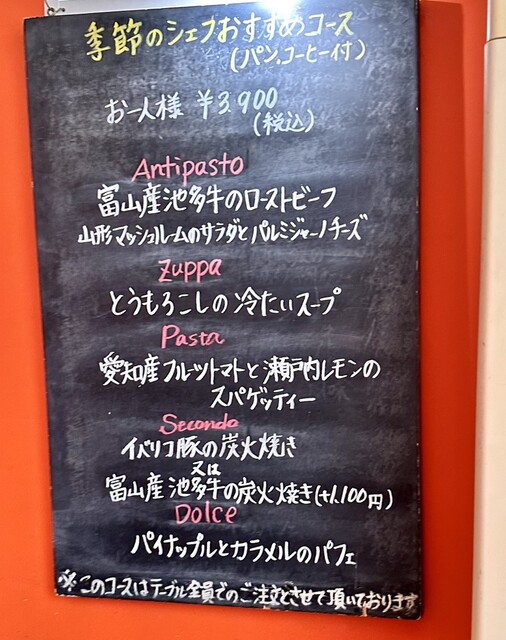 季節のシェフおすすめコース
(パン、コーヒー付)
お一人様 ¥3,900
(税込)
Antipasto
富山産池多牛のローストビーフ
山形マッシュルームのサラダとパルミジャーノチーズ
Zuppa
とうもろこしの冷たいスープ
Pasta
愛知産フルーツトマトと瀬戸内レモンの
スパゲッティー
Secondo
イベリコ豚の炭火焼き
又は
富山産池多牛の炭火焼き(+1,100円)
Dolce
パイナップルとカラメルのパフェ
※このコースはテーブル全員でのご注文とさせて頂いております